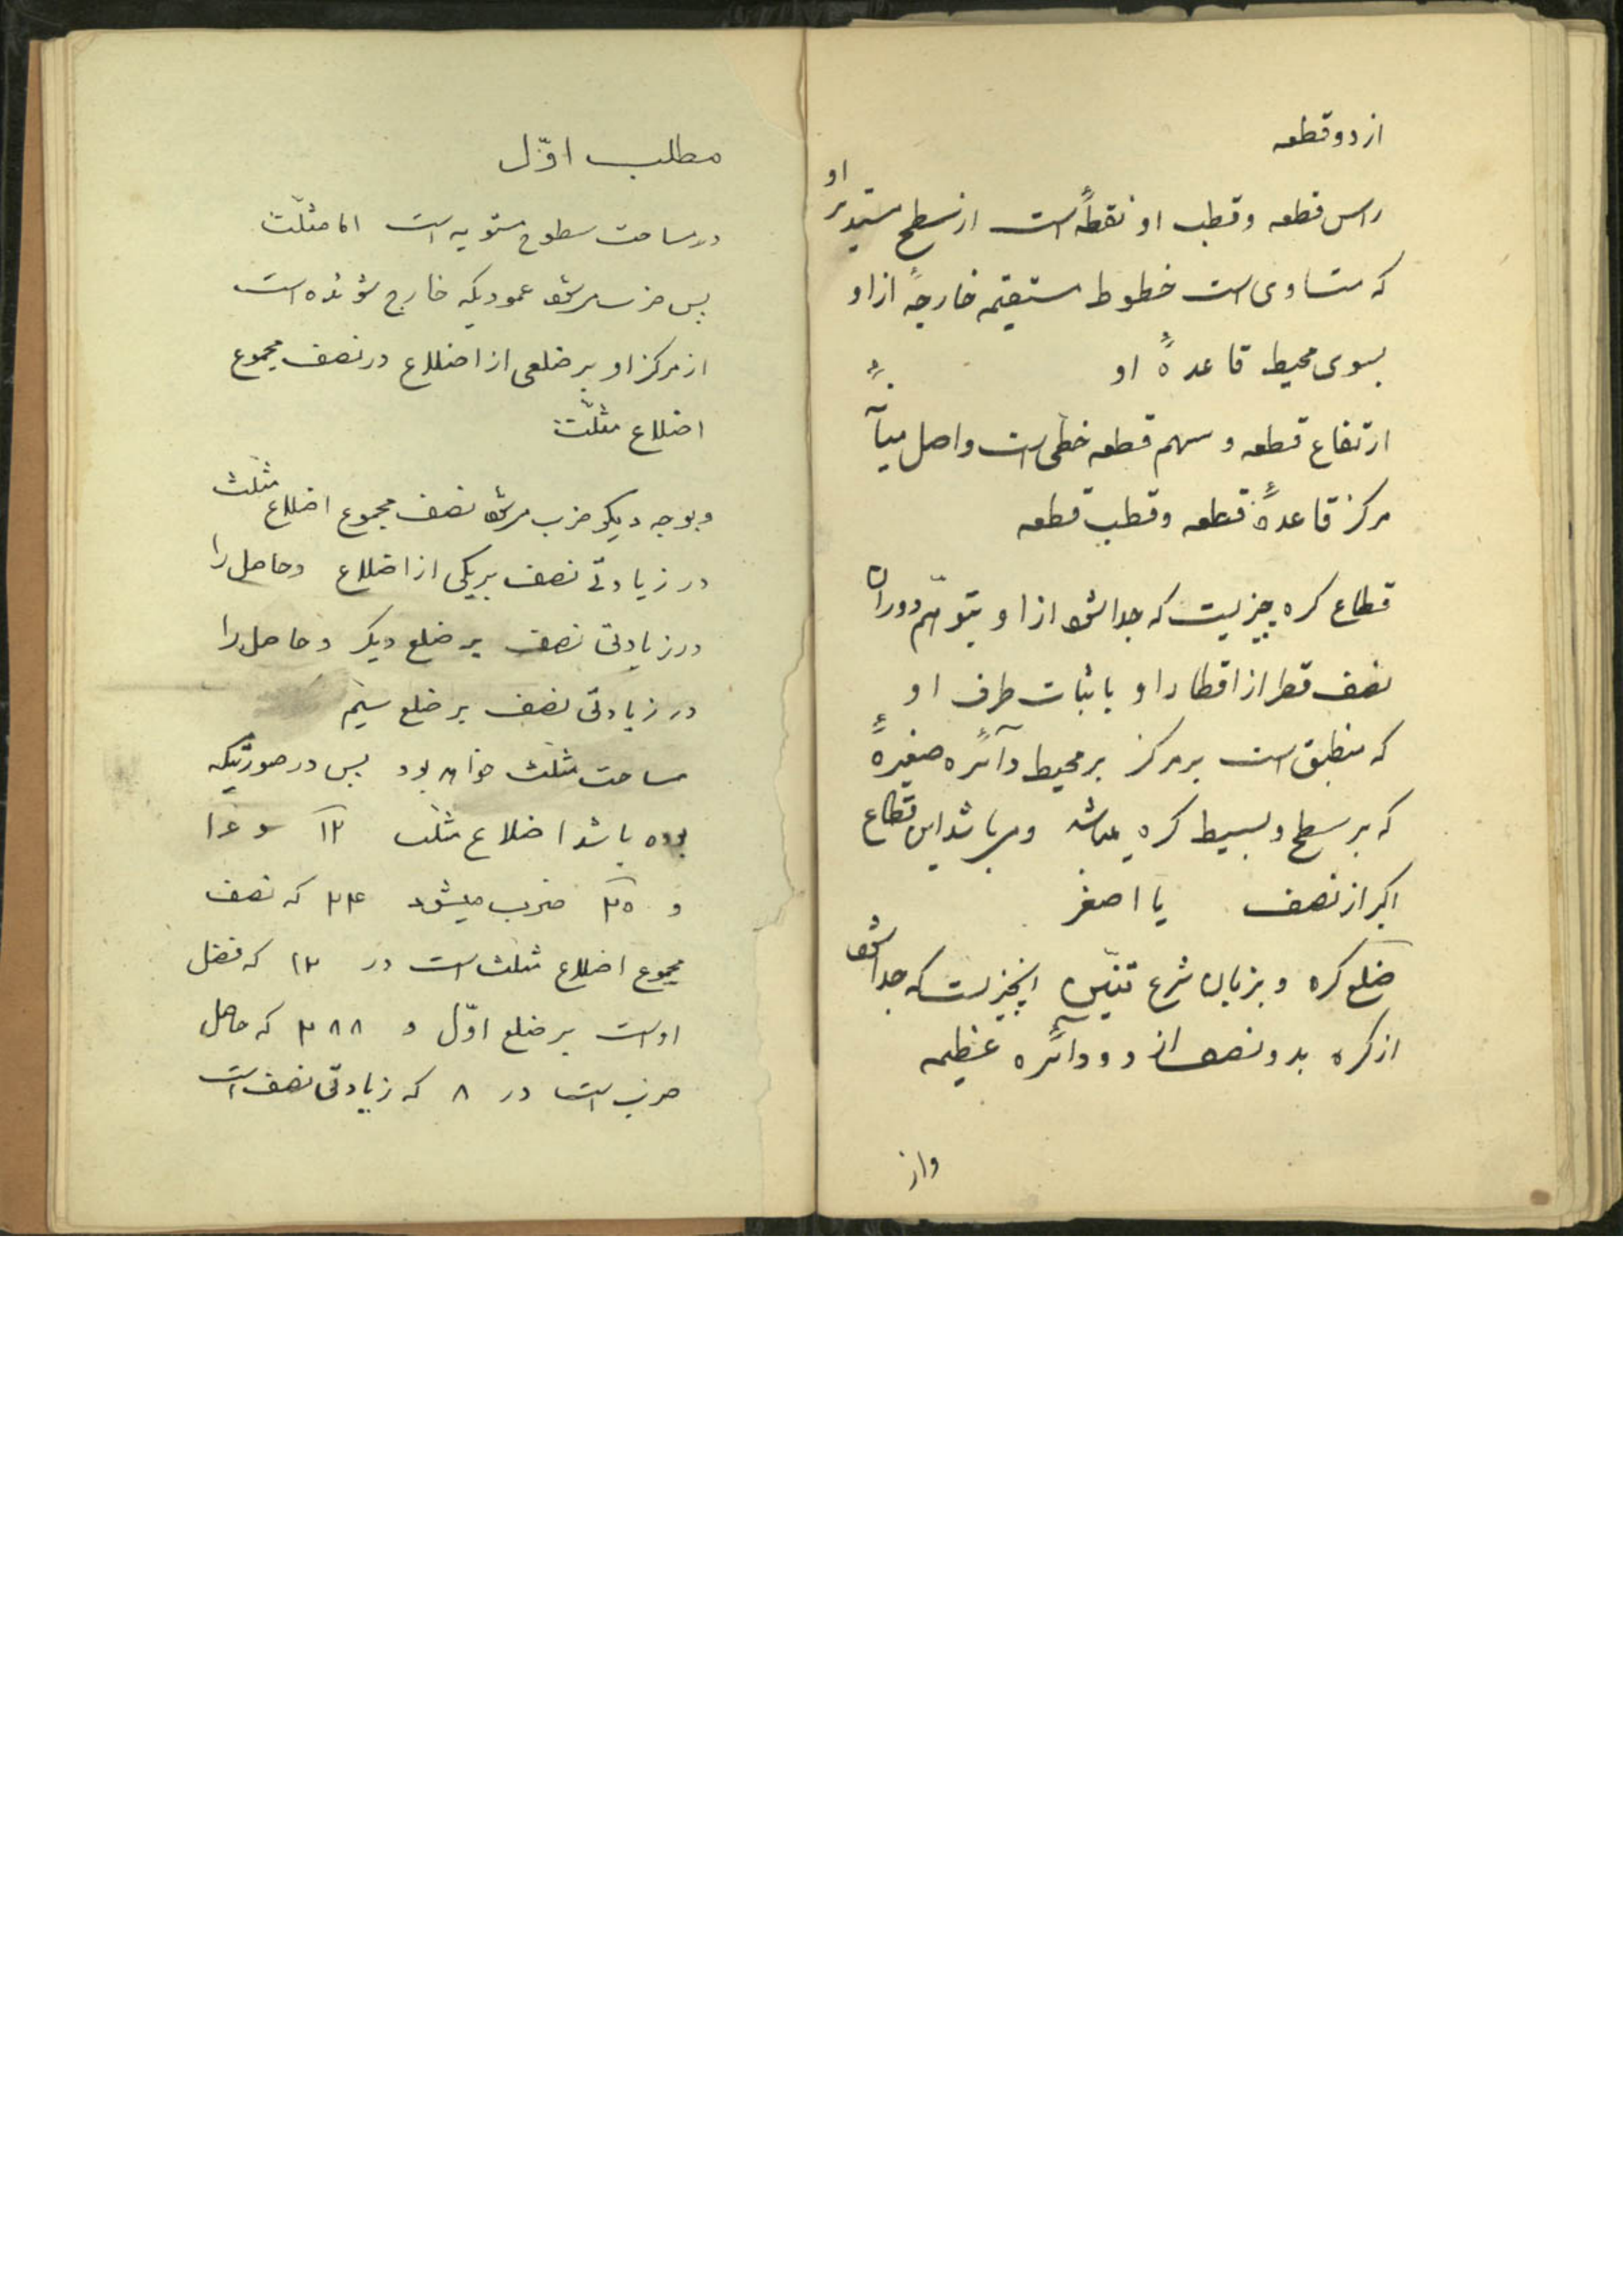 از دو قطعه
راس قطعه و قطب او نقطهٔ است از سطح مستدیر او
که متساوی است خطوط مستقیمه خارجهٔ از او
بسوی محیط قاعدهٔ او
ارتفاع قطعه و سهم قطعه خطی است واصل میآنهٔ
مرکز قاعدهٔ قطعه و قطب قطعه
قطاع کره چیزیست که جدا شود از او بتوهّم دوران
نصف قطر از اقطار او با ثبات طرف او
که منطبق است بر مرکز بر محیط دآئرهٔ صغیرهٔ
که بر سطح و بسیط کره میباشد و میباشد این قطاع
اکبر از نصف یا اصغر
ضلع کره و بزبان شرع تنّین انچیزیست که جدا شود
از کره بدو نصف از دو دآئرهٔ عظیمه
واز
مطلب اوّل
در مساحت سطوح مستویه است امّا مثلّث
پس ضرب میشود عمودیکه خارج شونده است
از مرکز او بر ضلعی از اضلاع در نصف مجموع
اضلاع مثلّث
و بوجه دیگر ضرب میشود نصف مجموع اضلاع مثلّث
در زیادتی نصف بر یکی از اضلاع و حاصل را
در زیادتی نصف بر ضلع دیگر و حاصل را
در زیادتی نصف بر ضلع سیّم
مساحت مثلّث خواهد بود پس در صورتیکه
بوده باشد اضلاع مثلّث ۱۲ و ۱۶
و ۲۰ ضرب میشود ۲۴ که نصف
مجموع اضلاع مثلّث است در ۱۲ که فضل
او است بر ضلع اوّل و ۲۸۸ که حاصل
ضرب است در ۸ که زیادتی نصف است